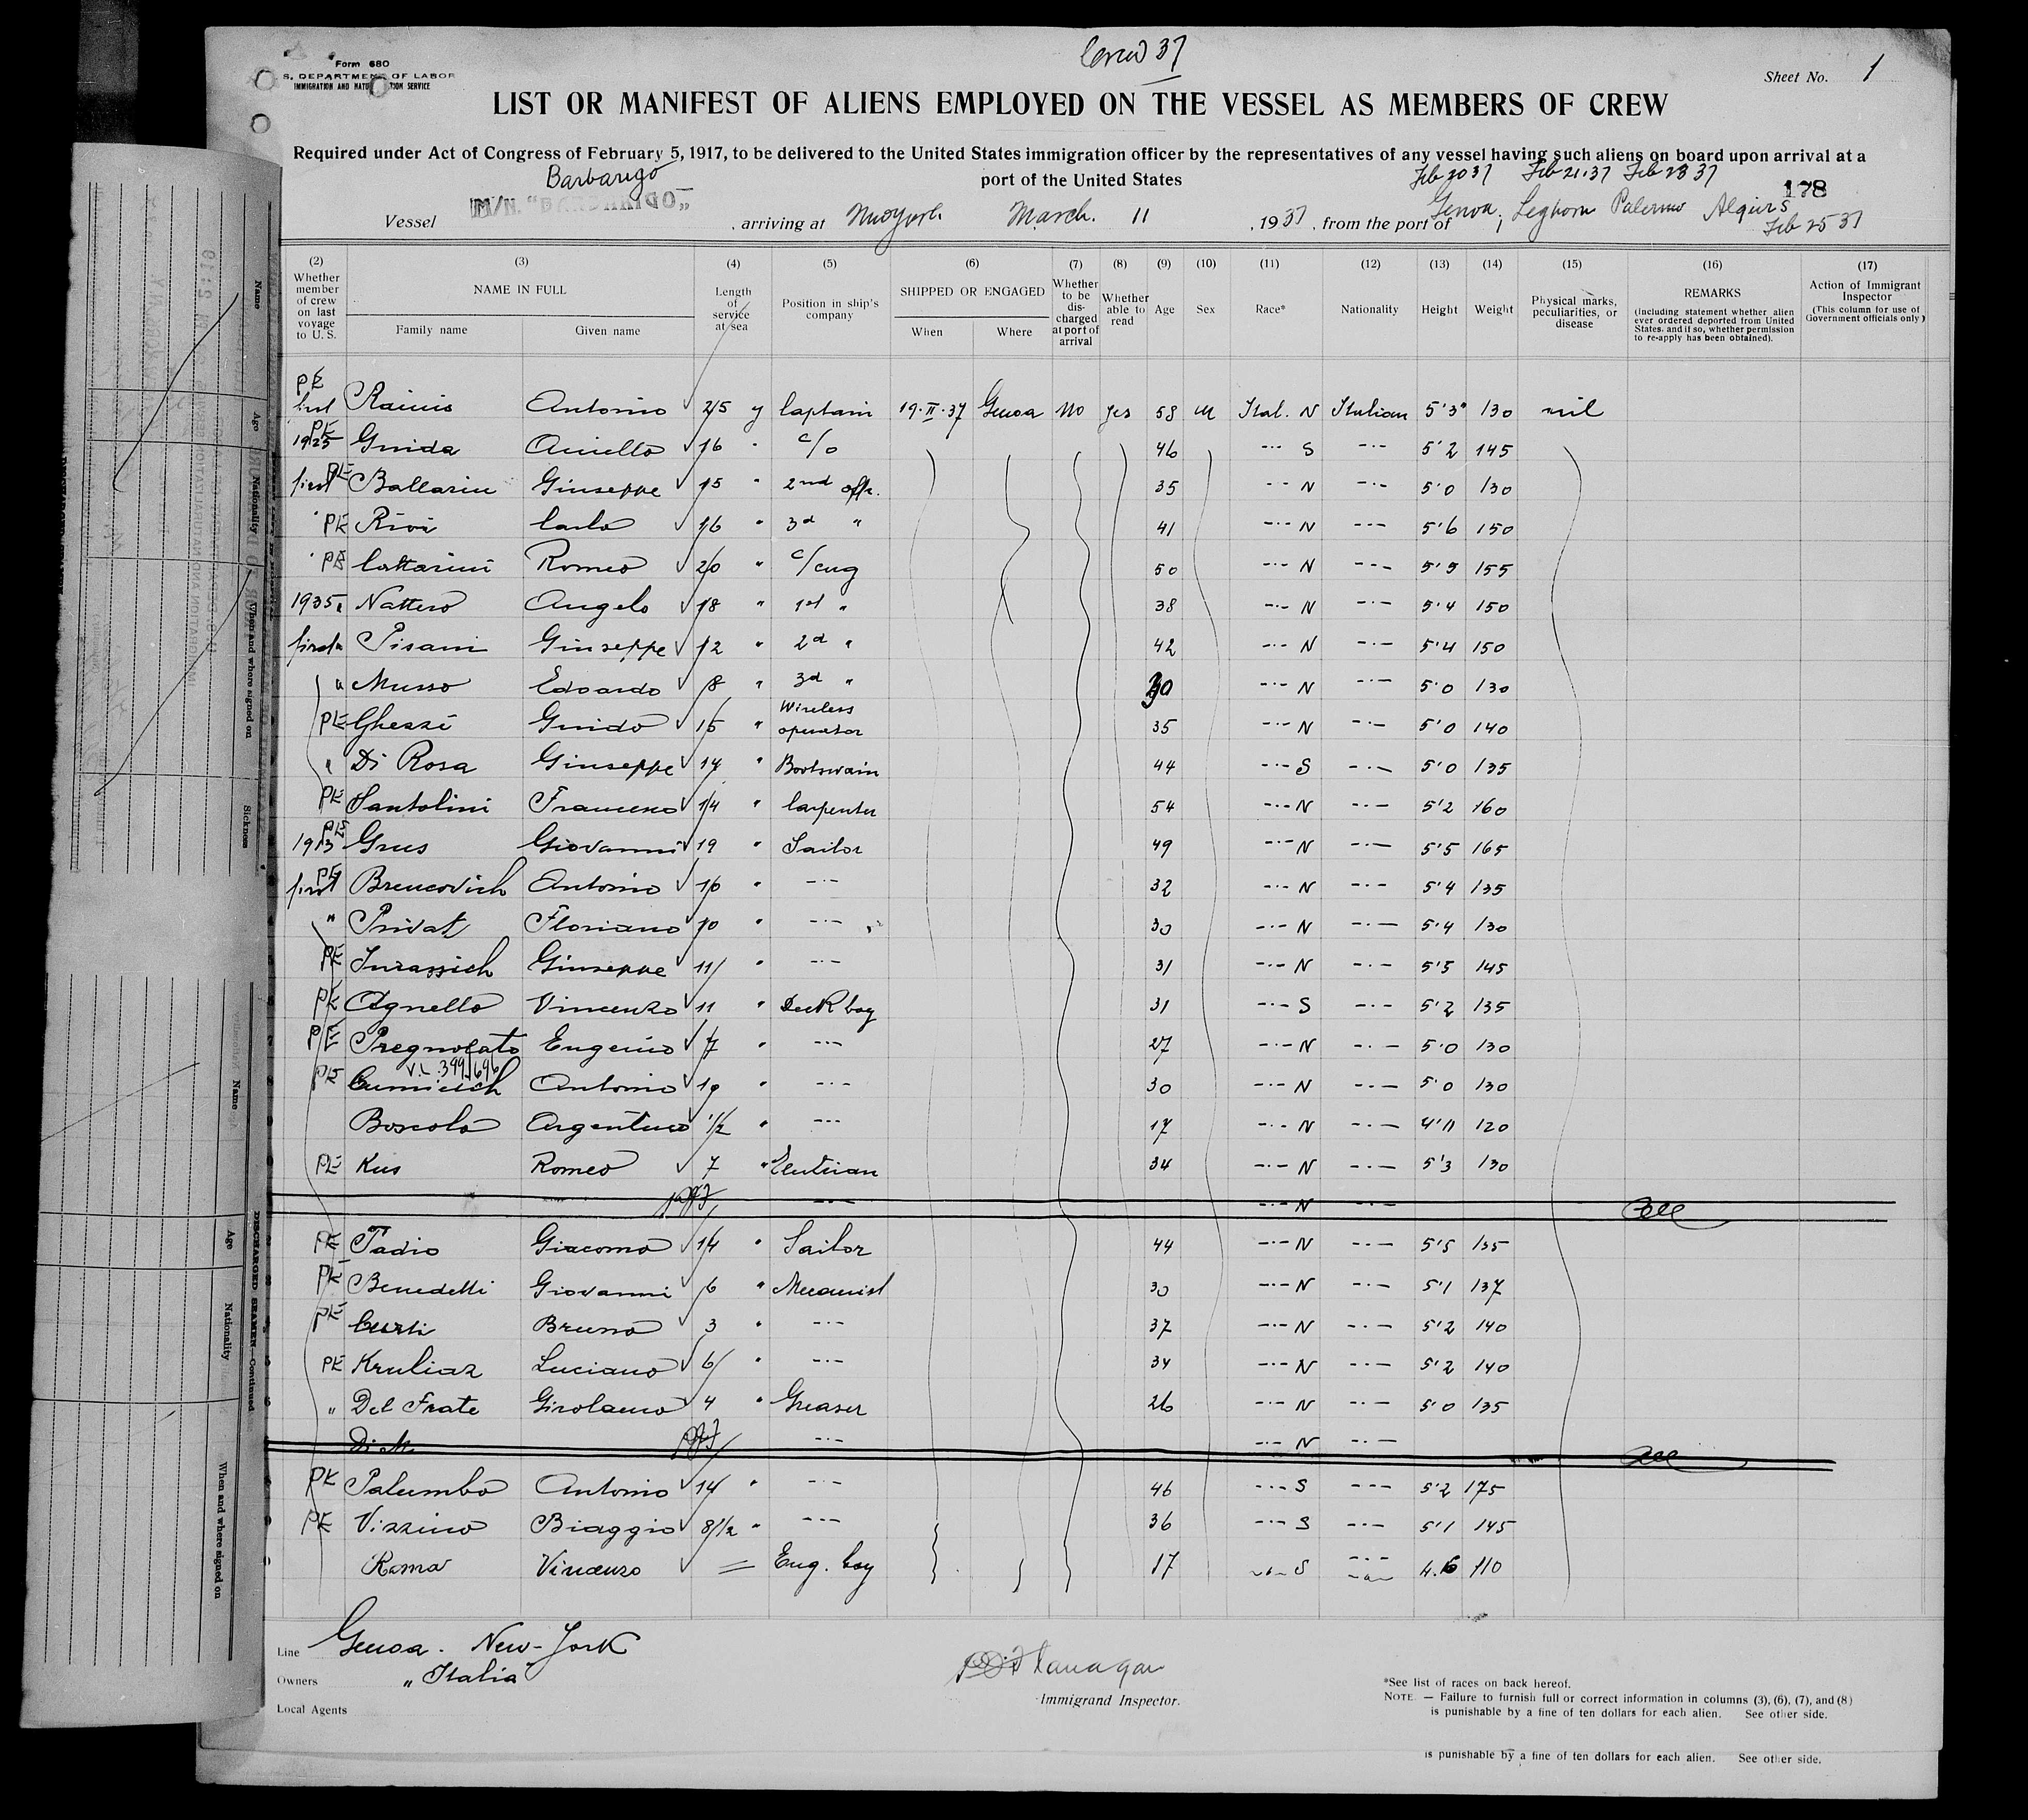 Form 680
S. DEPARTMENT OF LABOR
IMMIGRATION AND NATU TION SERVICE
Crew 37
Sheet No. 1
LIST OR MANIFEST OF ALIENS EMPLOYED ON THE VESSEL AS MEMBERS OF CREW
Required under Act of Congress of February 5, 1917, to be delivered to the United States immigration officer by the representatives of any vessel having such aliens on board upon arrival at a
port of the United States
Barbarigo
Feb 20 37 Feb 21.37 Feb 28 37
178
Vessel M/N. "BARBARIGO" , arriving at New York March. 11 , 1937 , from the port of Genoa; Leghorn Palermo Algiers
Feb 25 37
(2) Whether member of crew on last voyage to U. S.
(3) NAME IN FULL Family name Given name
(4) Length of service at sea
(5) Position in ship's company
(6) SHIPPED OR ENGAGED When Where
(7) Whether to be discharged at port of arrival
(8) Whether able to read
(9) Age
(10) Sex
(11) Race*
(12) Nationality
(13) Height
(14) Weight
(15) Physical marks, peculiarities, or disease
(16) REMARKS (including statement whether alien ever ordered deported from United States, and if so, whether permission to re-apply has been obtained).
(17) Action of Immigrant Inspector (This column for use of Government officials only)
PE first Rainis Antonio 25 y Captain 19.II.37 Genoa No yes 58 M Ital. N Italian 5'3" 130 nil
PE 1925 Guida Aniello 16 " c/o 46 -·- S -·- 5'2 145
PE first Ballarin Giuseppe 15 " 2nd offr. 35 -·- N -·- 5'0 130
" PE Rivi Carlo 16 " 3d " 41 -·- N --- 5'6 150
" PE Cattarini Romeo 20 " c/eng 50 -·- N --- 5'5 155
1935 " Nattero Angelo 18 " 1st " 38 -·- N -·- 5'4 150
first " Pisani Giuseppe 12 " 2d " 42 -·- N -·- 5'4 150
" Musso Edoardo 8 " 3d " 30 -·- N -·- 5'0 130
PE Ghezzi Guido 15 " Wireless operator 35 -·- N -·- 5'0 140
" Di Rosa Giuseppe 14 " Boatswain 44 -·- S -·- 5'0 135
PE Santolini Francesco 14 " Carpenter 54 -·- N -·- 5'2 160
PE 1913 Grus Giovanni 19 " Sailor 49 -·- N -·- 5'5 165
PE first Brencovich Antonio 10 " -·- 32 -·- N -·- 5'4 135
" Privat Floriano 10 " -·- 30 -·- N -·- 5'4 130
PE Jurassich Giuseppe 11 " -·- 31 -·- N -·- 5'5 145
PE Agnello Vincenzo 11 " Deck boy 31 -·- S -·- 5'2 135
PE Pregnolato Eugenio 7 " --- 27 -·- N -·- 5'0 130
V.L. 399/696
PE Antonio 19 " -·- 30 -·- N -·- 5'0 130
Boscolo Argentino 1/2 " --- 17 -·- N -·- 4'11 120
PE Kus Romeo 7 " 34 -·- N -·- 5'3 130
--- -·- N -·-
PE Tadio Giacomo 14 " Sailor 44 -·- N -·- 5'5 135
PE Benedetti Giovanni 6 " Mecanist 30 -·- N -·- 5'1 137
PE Curti Bruno 3 " -·- 37 -·- N -·- 5'2 140
PE Kruliaz Luciano 6 " -·- 34 -·- N -·- 5'2 140
" Del Frate Girolamo 4 " Greaser 26 -·- N -·- 5'0 135
-·- -·- N -·-
PE Palumbo Antonio 14 " -·- 46 -·- S --- 5'2 175
PE Vizzino Biaggio 8 1/2 " --- 36 -·- S -·- 5'1 145
Roma Vincenzo = Eng. boy 17 -·- S -·- 4.6 110
Line Genoa - New-York
Owners "Italia"
Local Agents
Flanagan
Immigrand Inspector.
*See list of races on back hereof.
NOTE. — Failure to furnish full or correct information in columns (3), (6), (7), and (8)
is punishable by a fine of ten dollars for each alien. See other side.
is punishable by a fine of ten dollars for each alien. See other side.
Name
Age
Nationality
When and where signed on
Sickness
DISCHARGED SEAMEN—Continued
Name
Age
Nationality
When and where signed on